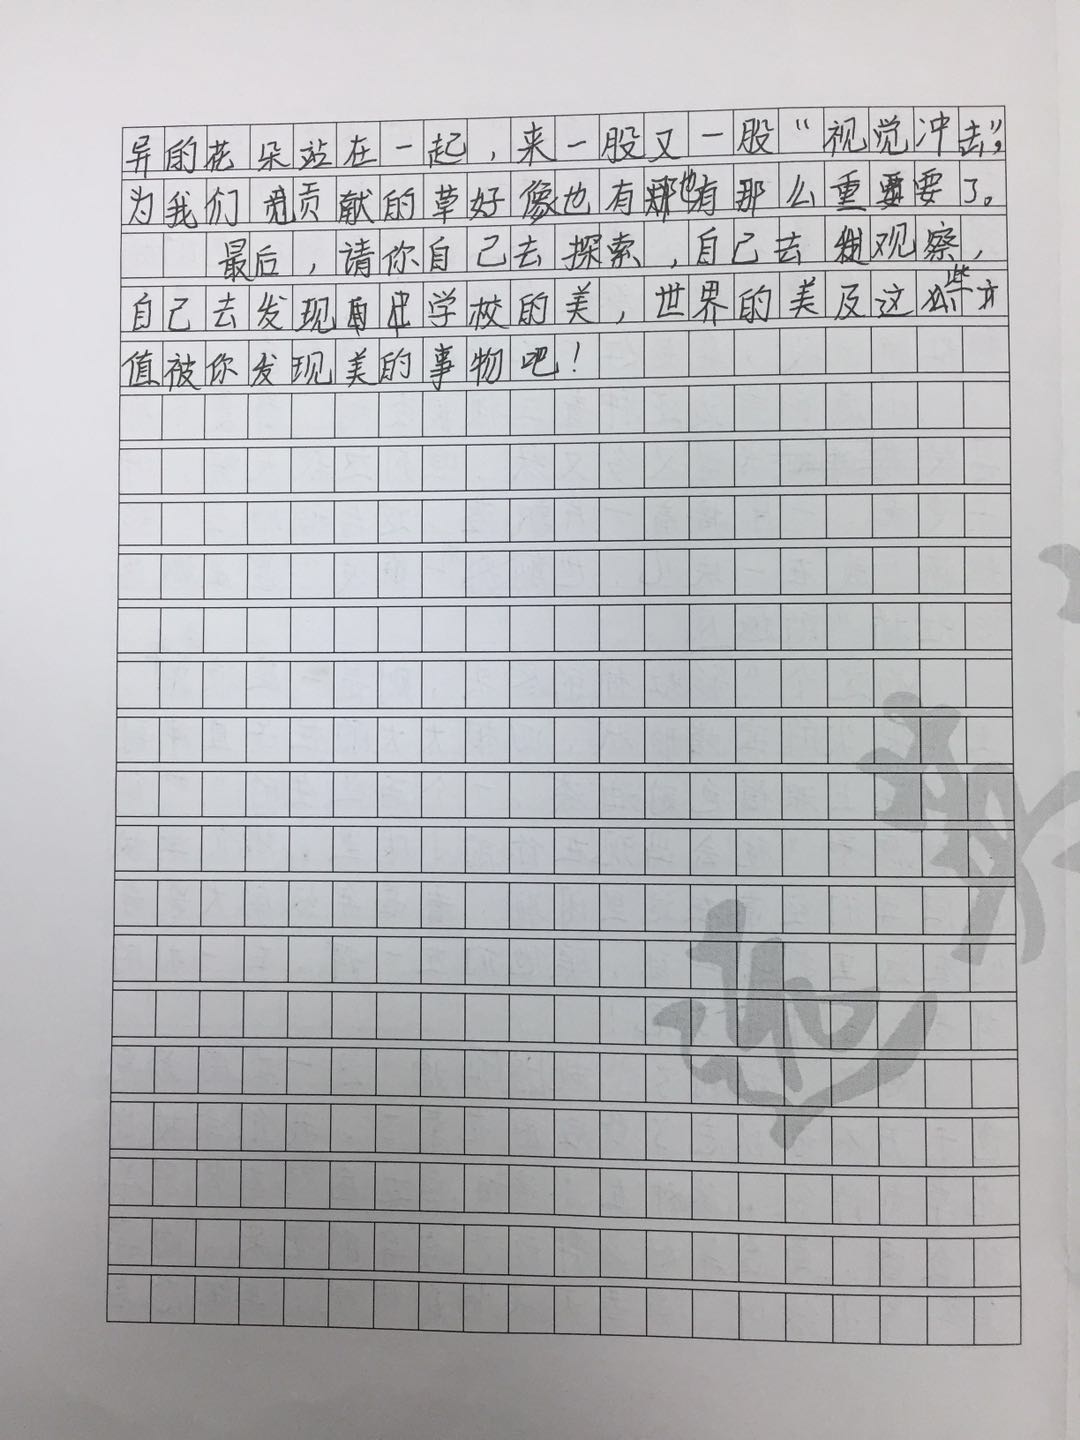 异的花朵站在一起，来一股又一股“视觉冲击”，
为我们贡献的草好像也有那么重要了。
最后，请你自己去探索，自己去观察，
自己去发现学校的美，世界的美及这些
值被你发现美的事物吧！